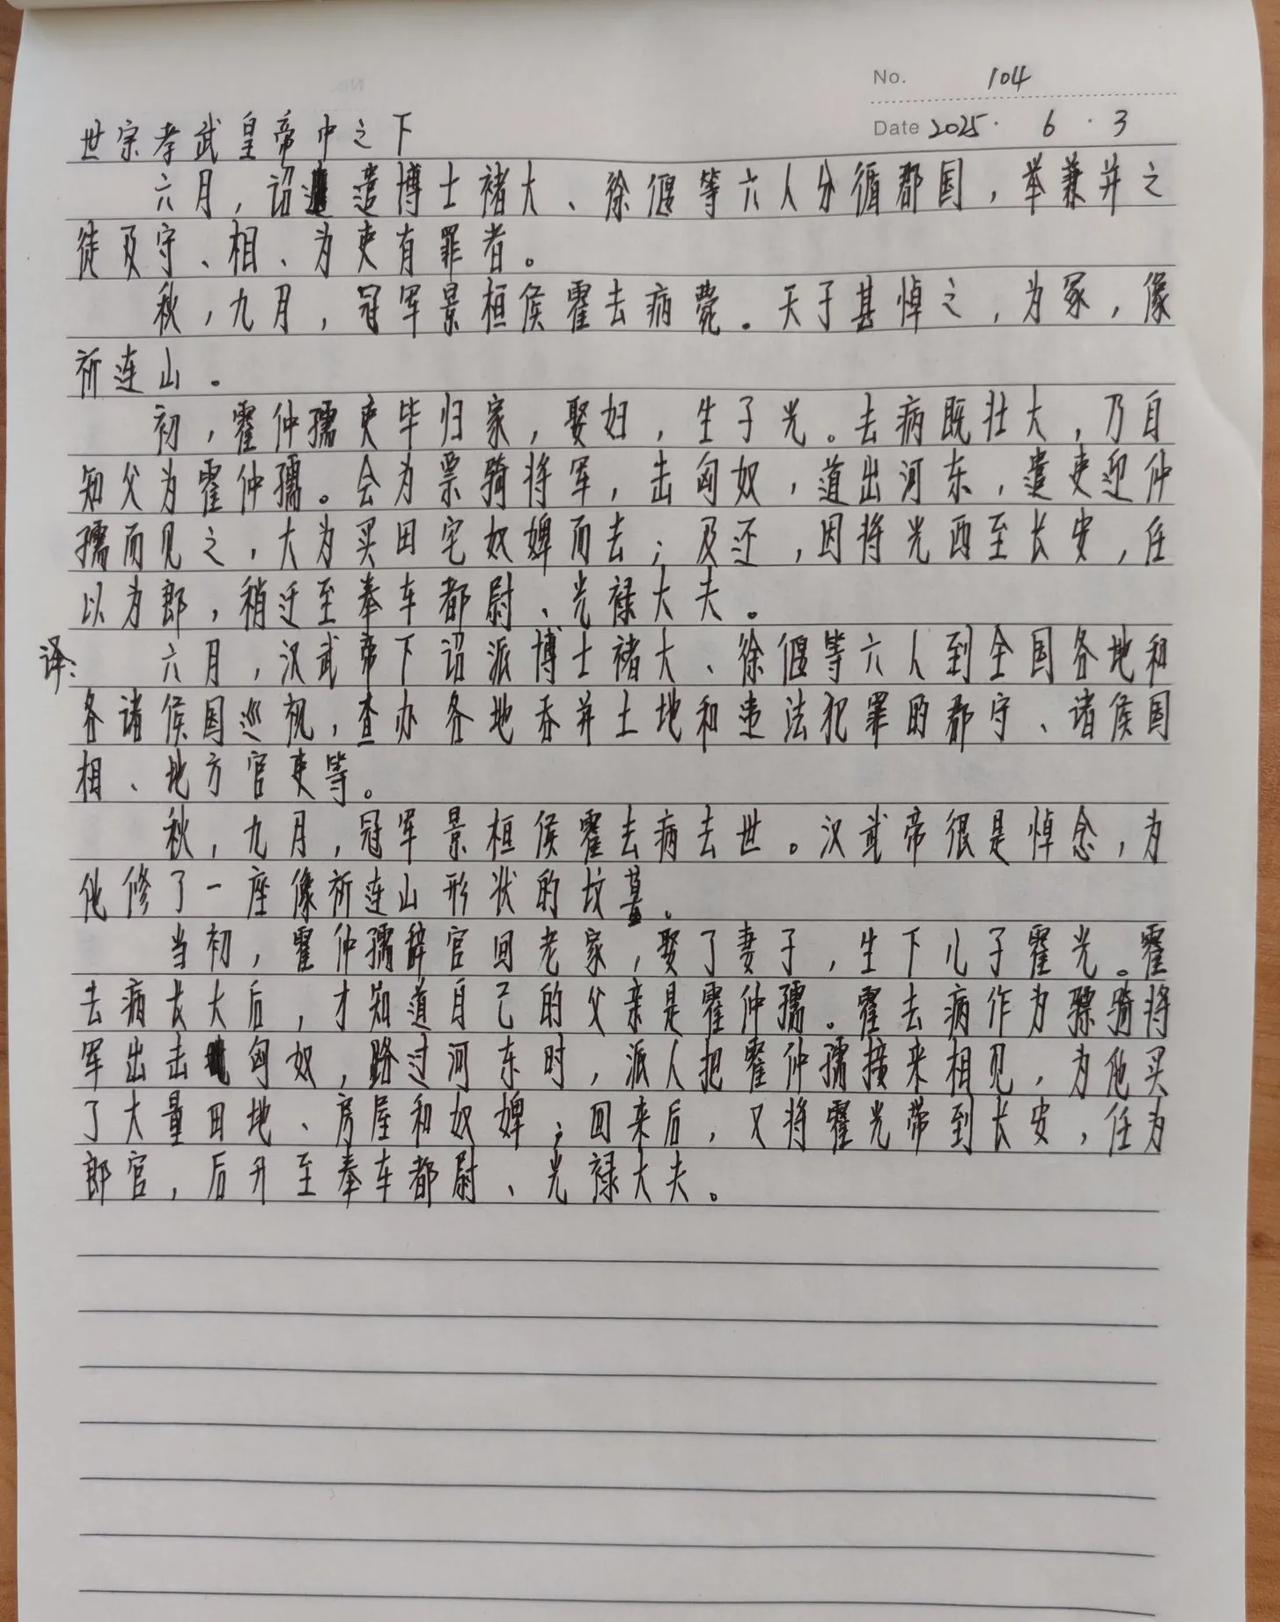 No. 104
Date 2025 · 6 · 3
世宗孝武皇帝中之下
六月，诏遣博士褚大、徐偃等六人分循郡国，举兼并之
徒及守、相、为吏有罪者。
秋，九月，冠军景桓侯霍去病薨。天子甚悼之，为冢，像
祈连山。
初，霍仲孺吏毕归家，娶妇，生子光。去病既壮大，乃自
知父为霍仲孺。会为票骑将军，击匈奴，道出河东，遣吏迎仲
孺而见之，大为买田宅奴婢而去；及还，因将光西至长安，任
以为郎，稍迁至奉车都尉、光禄大夫。
译：六月，汉武帝下诏派博士褚大、徐偃等六人到全国各地和
各诸侯国巡视，查办各地吞并土地和违法犯罪的郡守、诸侯国
相、地方官吏等。
秋，九月，冠军景桓侯霍去病去世。汉武帝很是悼念，为
他修了一座像祈连山形状的坟墓。
当初，霍仲孺辞官回老家，娶了妻子，生下儿子霍光。霍
去病长大后，才知道自己的父亲是霍仲孺。霍去病作为骠骑将
军出击匈奴，路过河东时，派人把霍仲孺接来相见，为他买
了大量田地、房屋和奴婢；回来后，又将霍光带到长安，任为
郎官，后升至奉车都尉、光禄大夫。